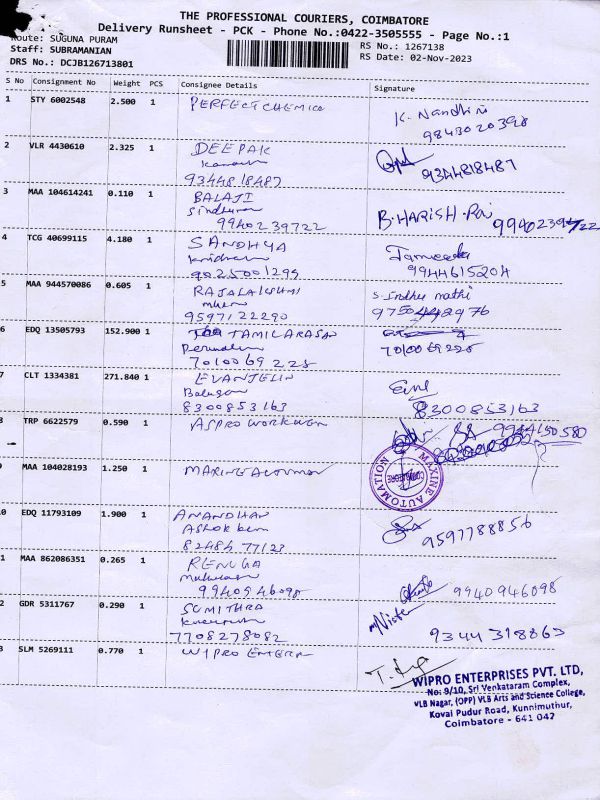 THE PROFESSIONAL COURIERS, COIMBATORE
Delivery Runsheet - PCK - Phone No.:0422-3505555 - Page No.:1
Route: SUGUNA PURAM
Staff: SUBRAMANIAN
DRS No.: DCJB126713801
RS No.: 1267138
RS Date: 02-Nov-2023
S No Consignment No Weight PCS Consignee Details Signature
1 STY 6002548 2.500 1 PERFECT CHEMICO
K. Nandhini
9843020398
2 VLR 4430610 2.325 1 DEEPAK
9344818487
9344818487
3 MAA 104614241 0.110 1 BALAJI
9940239722
B.HARISH.Raj 9940239722
4 TCG 40699115 4.180 1 SANDHYA
9025001299
9944615204
5 MAA 944570086 0.605 1 RAJALAKSHMI
9597122290
S. Indhu mathi
9750442976
6 EDQ 13505793 152.900 1 TAMILARASAN
7010069225
7010069225
7 CLT 1334381 271.840 1 EVANJELIN
8300853163
8300853163
8 TRP 6622579 0.590 1 ASPRO WORKWEN
9944150580
9 MAA 104028193 1.250 1
MAXINE AUTOMATION
COIMBATORE
10 EDQ 11793109 1.900 1 ANANDHAN
Ashok
82484 77123
9597788856
11 MAA 862086351 0.265 1 RENUGA
9940946098
9940946098
12 GDR 5311767 0.290 1 SUMITHRA
7708278082
9344318863
13 SLM 5269111 0.770 1 WIPRO ENTERP
WIPRO ENTERPRISES PVT. LTD,
No: 9/10, Sri Venkataram Complex,
VLB Nagar, (OPP) VLB Arts and Science College,
Kovai Pudur Road, Kunnimuthur,
Coimbatore - 641 042